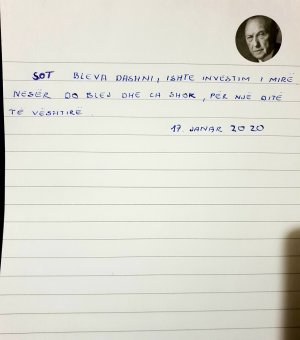 SOT BLEVA DASHNI, ISHTE INVESTIM I MIRË
NESER DO BLEJ DHE CA SHOK, PER NJE DITË
TE VËSHTIRE.
17. JANAR 2020